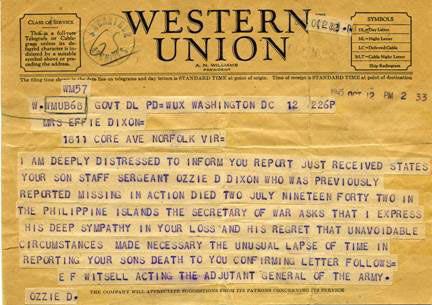 CLASS OF SERVICE
This is a full-rate
Telegram or Cable-
gram unless its de-
ferred character is in-
dicated by a suitable
symbol above or pre-
ceding the address.
WESTERN
UNION
A. N. WILLIAMS
PRESIDENT
SYMBOLS
DL=Day Letter
NL=Night Letter
LC=Deferred Cable
NLT=Cable Night Letter
Ship Radiogram
The filing time shown in the date line on telegrams and day letters is STANDARD TIME at point of origin. Time of receipt is STANDARD TIME at point of destination
WM57
W.WMUB68 GOVT DL PD=WUX WASHINGTON DC 12 226P
1945 OCT 12 PM 2 33
MRS EFFIE DIXON=
1811 CORE AVE NORFOLK VIR=
I AM DEEPLY DISTRESSED TO INFORM YOU REPORT JUST RECEIVED STATES
YOUR SON STAFF SERGEANT OZZIE D DIXON WHO WAS PREVIOUSLY
REPORTED MISSING IN ACTION DIED TWO JULY NINETEEN FORTY TWO IN
THE PHILIPPINE ISLANDS THE SECRETARY OF WAR ASKS THAT I EXPRESS
HIS DEEP SYMPATHY IN YOUR LOSS AND HIS REGRET THAT UNAVOIDABLE
CIRCUMSTANCES MADE NECESSARY THE UNUSUAL LAPSE OF TIME IN
REPORTING YOUR SONS DEATH TO YOU CONFIRMING LETTER FOLLOWS=
E F WITSELL ACTING THE ADJUTANT GENERAL OF THE ARMY.
OZZIE D.
THE COMPANY WILL APPRECIATE SUGGESTIONS FROM ITS PATRONS CONCERNING ITS SERVICE